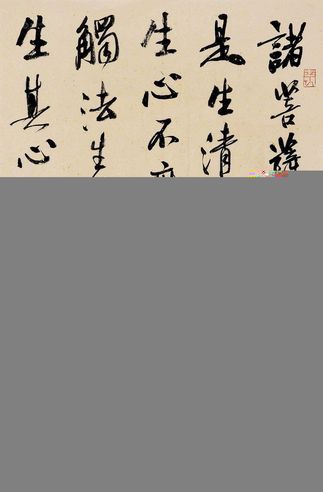 諸菩薩
是生清
生心不
觸法生
生其心